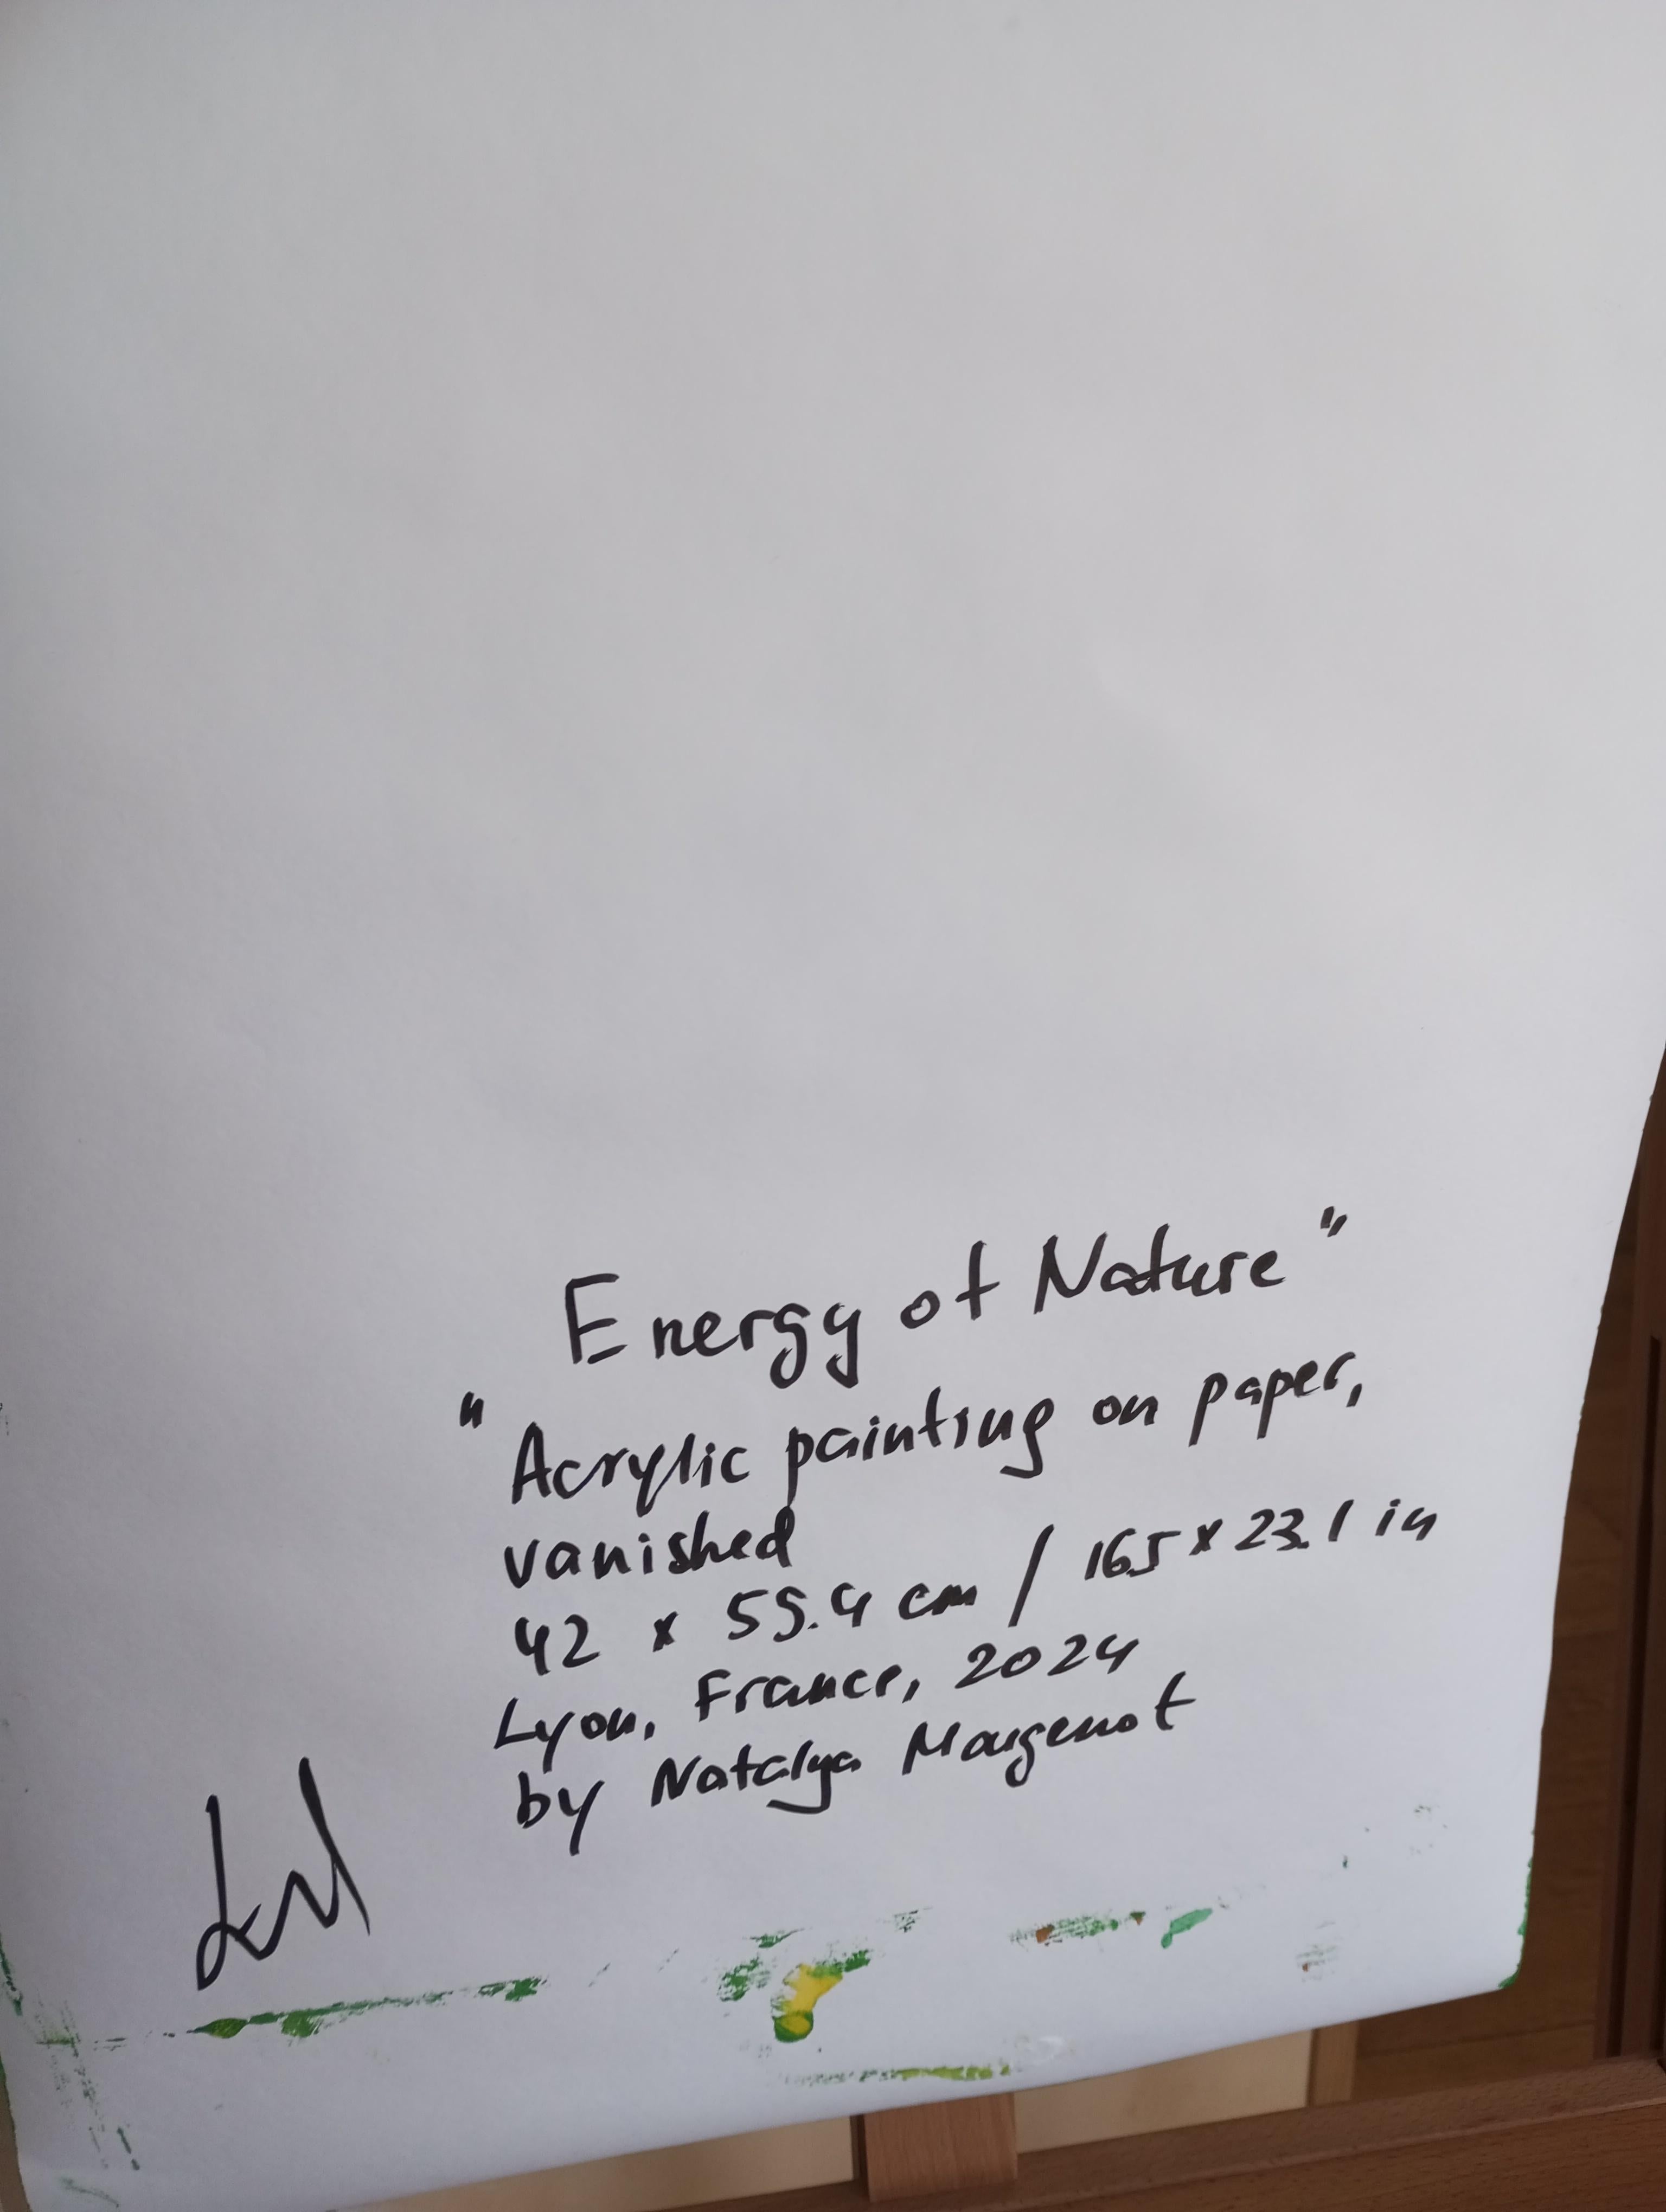 Energy of Nature"
"Acrylic painting on paper,
vanished
42 x 59.4 cm / 16.5 x 23.1 in
Lyon, France, 2024
by Natalya Mougenot